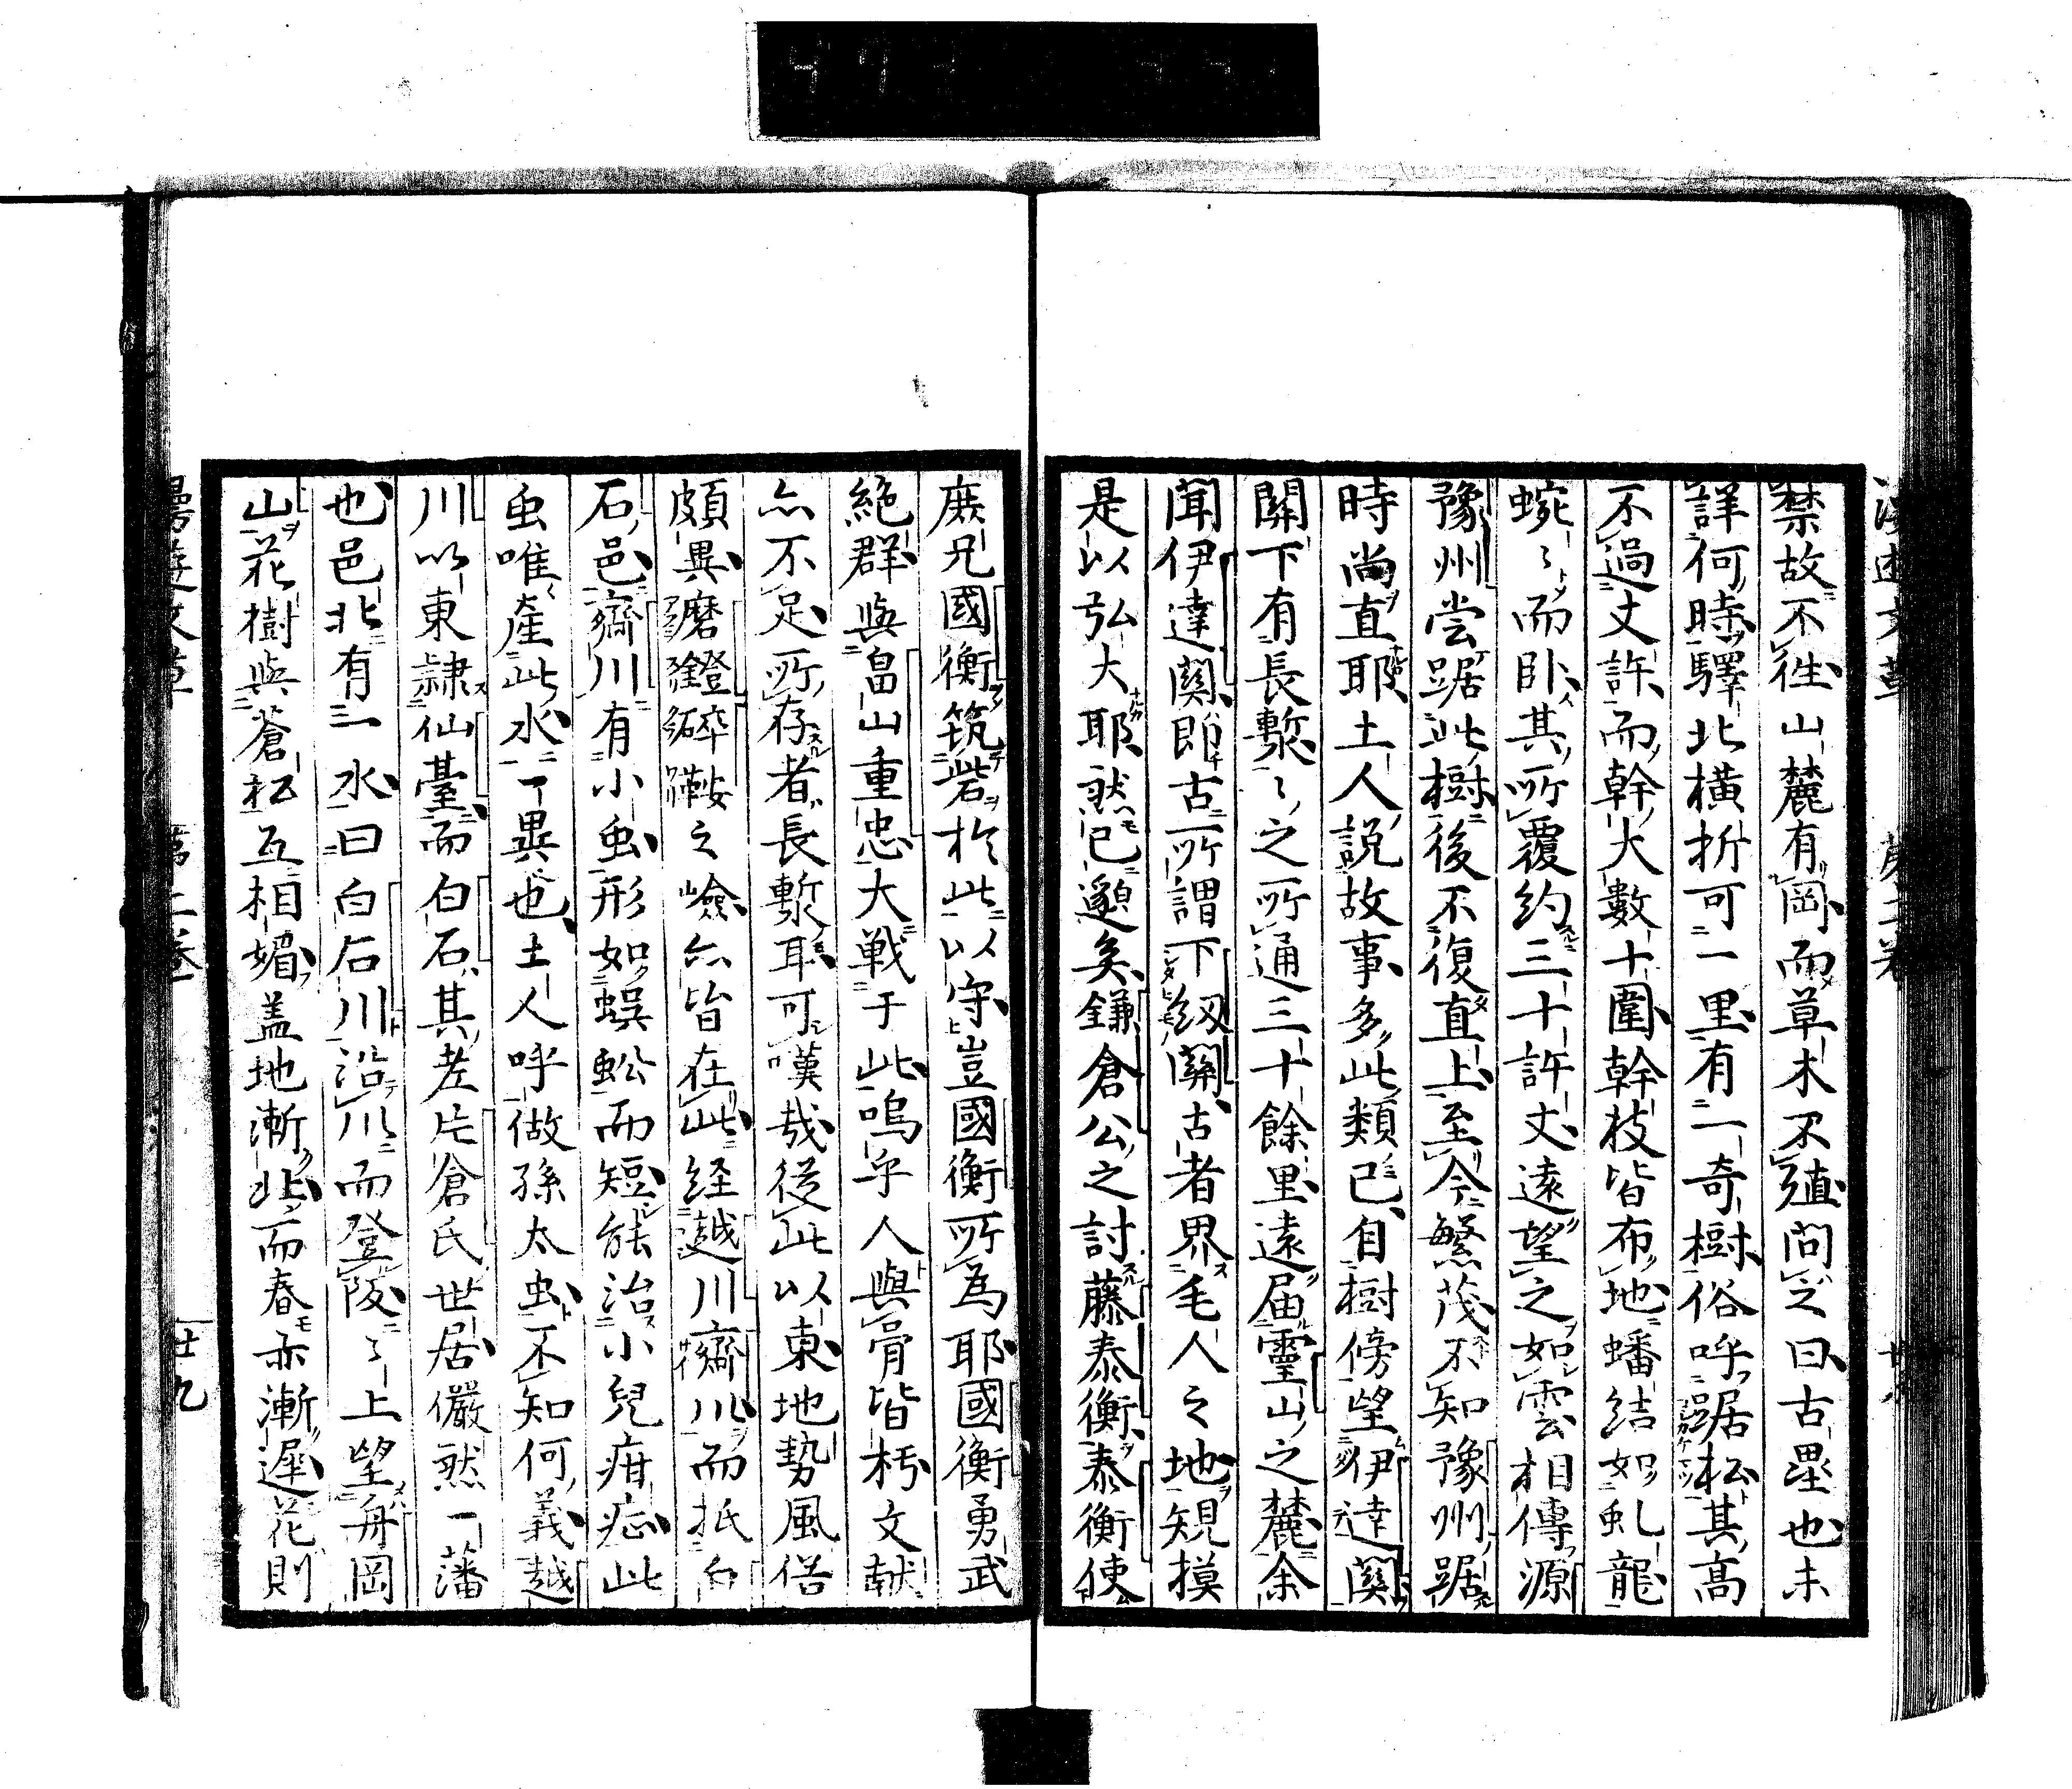 禁故不往山麓有岡而草木不殖問之曰古壘也未
詳何時驛北横折可一里有一奇樹俗呼踞松其高
不過丈許而幹大數十圍幹枝皆布地蟠結如虬龍
蜿々而卧其所覆約三十許丈遠望之如雲相傳源
豫州嘗踞此樹後不復直上至今繁茂不知豫州踞
時尚直耶土人説故事多此類已自樹傍望伊達關
關下有長塹々之所通三十餘里遠届靈山之麓余
聞伊達關即古所謂下紐關古者界毛人之地規摸
是以弘大耶然已邈矣鎌倉公之討藤泰衡泰衡使
庶兄國衡筑砦於此以守豈國衡所為耶國衡勇武
絶群與畠山重忠大戦于此嗚乎人與骨皆朽文献
亦不足所存者長塹耳可嘆哉從此以東地勢風俗
頗異磨鐙碎鞍之嶮亦皆在此経越川齋川而抵白
石邑齋川有小虫形如蜈蚣而短能治小兒疳㽱此
虫唯産此水一異也土人呼做孫太虫不知何義越
川以東隷仙臺而白石其老片倉氏世居儼然一藩
也邑北有一水曰白石川沿川而登陵々上望舟岡
山花樹與蒼松互相媚盖地漸北而春亦漸遲花則
第二卷
廿九